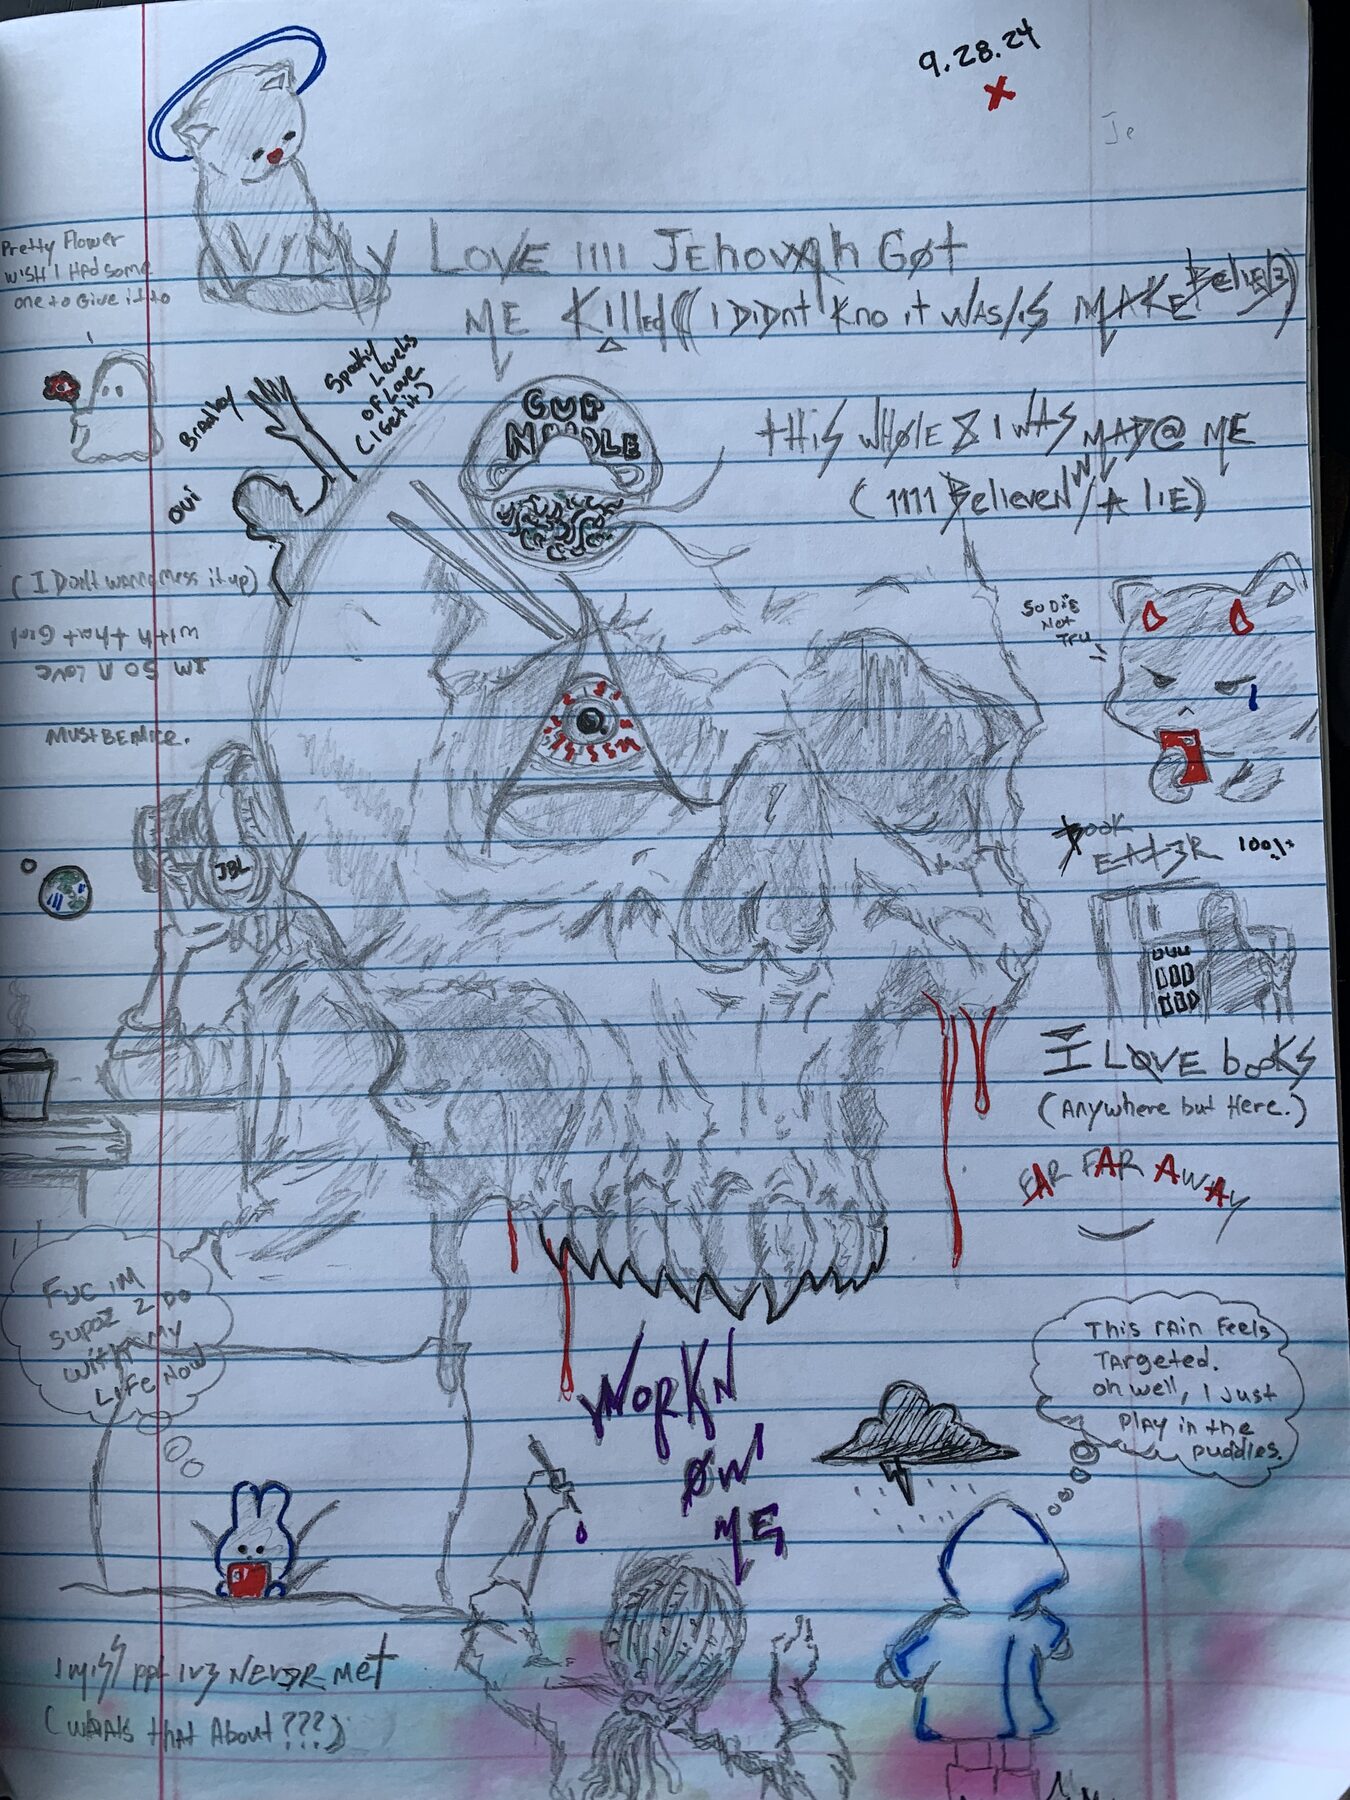 9.28.24
Je
LOVE 1111 JEhovah GØt
ME Killed (( I DiDnt' Kno it WAS/iS MAKE BeliE3)
Pretty Flower
wish I Had some
one to Give it to
Bradley
Spooky
Levels
Of Love
(I Get it)
Oui
CUP
NOODLE
tHiS WHØlE 8 I WAS MAD@ ME
(1111 BelieveN A liE)
(I Don't wanna Mess it up)
with that Girl
IM SO N Love
Must BE Nice.
SO DiE
Not
Tru
JBL
BOOK
EAt3R 100%
I LØVE booKS
(Anywhere but Here.)
FAR FAR AWAy
Fuc iM
Supoz 2 Do
with My
Life Now
This rAin Feels
TArgeted.
oh well, I Just
PlAy in the
puddles.
WORKN
ØN'
ME
I miss ppl Iv3 NEvƏR MEt
(whAts thAt About???)